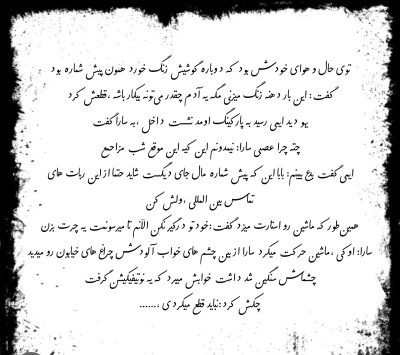 توی حال و هوای خودش بود که دوباره گوشیش زنگ خورد همون پیش شماره بود
گفت: این بار دهنه زنگ میزنی مگه یه آدم چقدر می‌تونه بیکار باشه ،قطعش کرد
یهو دید ایبی رسید به پارکینگ اومد نشست داخل ،به سارا گفت
چته چرا عصبی سارا: نمیدونم این کیه این موقع شب مزاحم
ایبی گفت بچ ببینم: بابا این که پیش شماره مال جای دیگست شاید حتما از این ربات های
تماس بین المللی ،ولش کن
همین طور که ماشین رو استارت میزد گفت: خودتو درگیر نکن الانم تا میرسونمت یه چرت بزن
سارا: اوکی ،ماشین حرکت میکرد سارا از بین چشم های خواب آلودش چراغ های خیابون رو میدید
چشماش سنگین شد داشت خوابش میبرد که یه نوتیفیکیشن گرفت
چکش کرد: نباید قطع میکردی ،.......